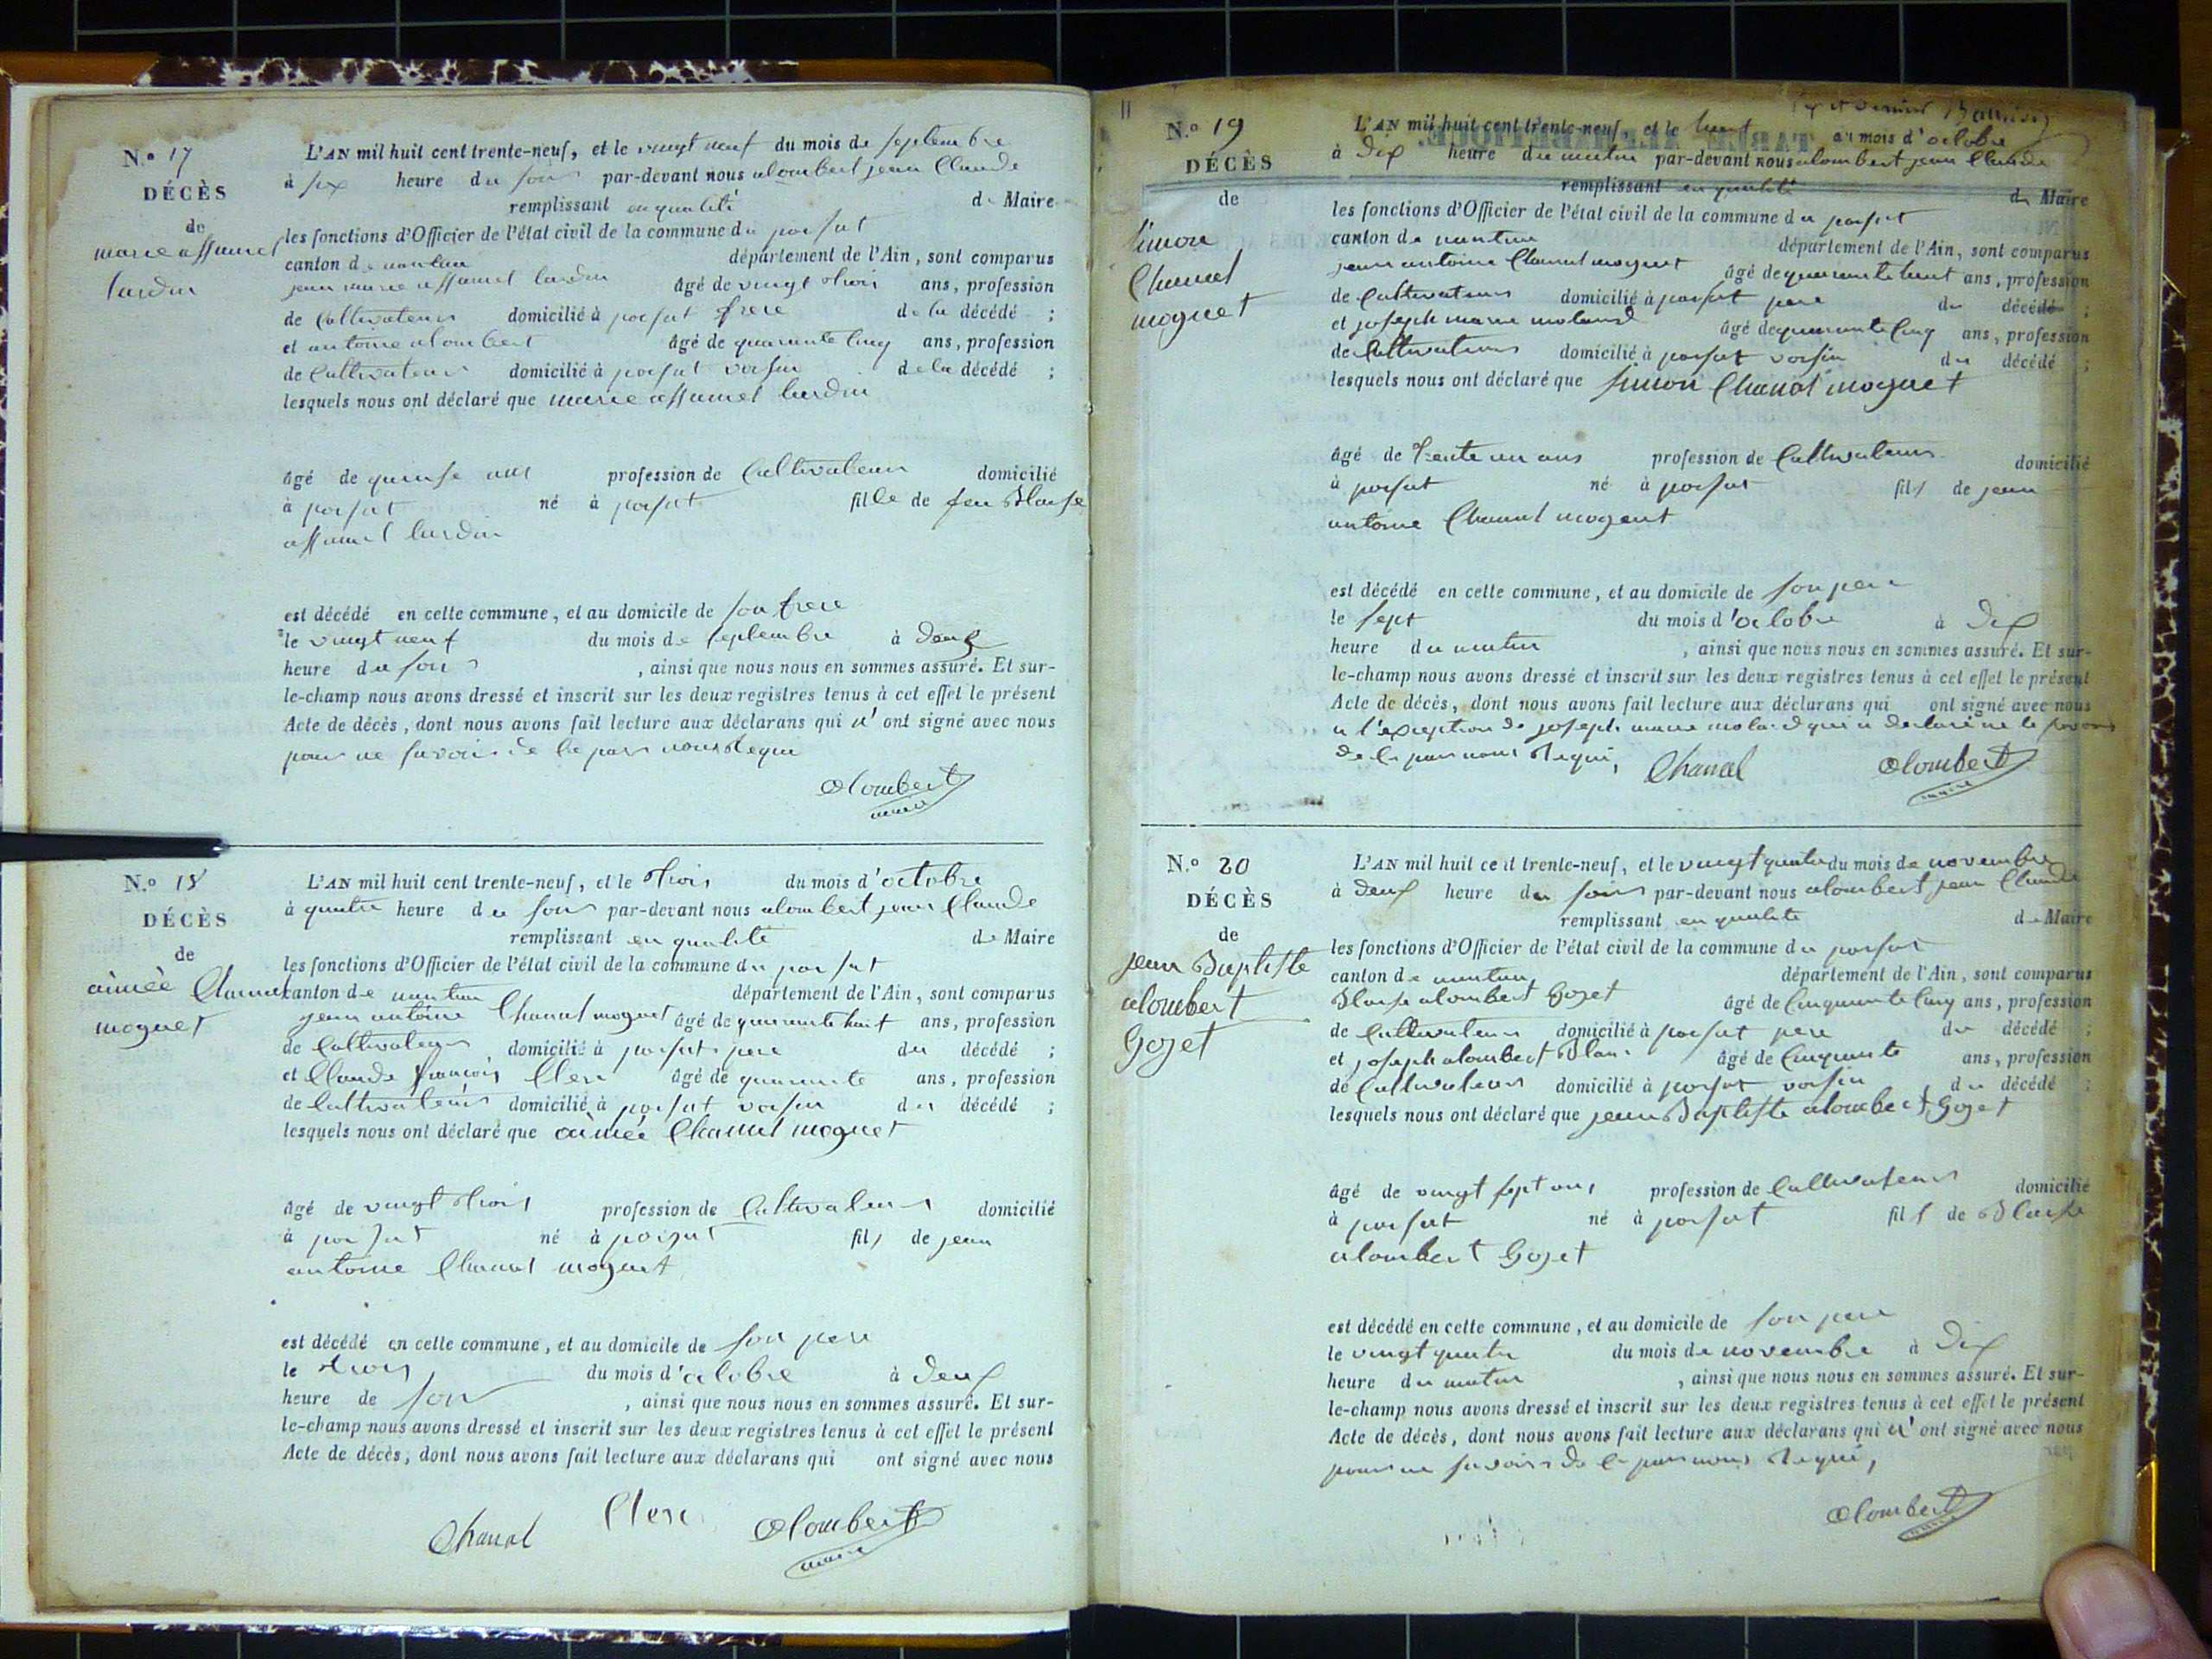 N.º 17
DÉCÈS
de
marie assumel
lurdin
L'AN mil huit cent trente-neuf, et le vingt neuf du mois de septembre
à six heure du soir par-devant nous alombert jean Claude
remplissant en qualité de Maire
les fonctions d'Officier de l'état civil de la commune du poisat
canton de nantua département de l'Ain, sont comparus
jean marie assumel lurdin âgé de vingt trois ans, profession
de Cultivateur domicilié à poisat frere de la décédé ;
et antoine alombert âgé de quarante cinq ans, profession
de Cultivateur domicilié à poisat voisin de la décédé ;
lesquels nous ont déclaré que marie assumel lurdin
âgé de quinse ans profession de Cultivateur domicilié
à poisat né à poisat fille de feu Blaise
assumel lurdin
est décédé en cette commune, et au domicile de son frere
le vingt neuf du mois de septembre à deux
heure du soir , ainsi que nous nous en sommes assuré. Et sur-
le-champ nous avons dressé et inscrit sur les deux registres tenus à cet effet le présent
Acte de décès, dont nous avons fait lecture aux déclarans qui n' ont signé avec nous
pour ne savoir de le par nous requi
alombert
maire
N.º 18
DÉCÈS
de
aimée Chanal
moguet
L'AN mil huit cent trente-neuf, et le trois du mois d'octobre
à quatre heure du soir par-devant nous alombert jean Claude
remplissant en qualité de Maire
les fonctions d'Officier de l'état civil de la commune du poisat
canton de nantua département de l'Ain, sont comparus
jean antoine Chanal moguet âgé de quarante huit ans, profession
de Cultivateur domicilié à poisat pere du décédé ;
et Claude françois Clerc âgé de quarante ans, profession
de Cultivateur domicilié à poisat voisin du décédé ;
lesquels nous ont déclaré que aimée Chanal moguet
âgé de vingt trois profession de Cultivateur domicilié
à poisat né à poizat fils de jean
antoine Chanal moguet
est décédé en cette commune, et au domicile de son pere
le trois du mois d'octobre à deux
heure de soir , ainsi que nous nous en sommes assuré. Et sur-
le-champ nous avons dressé et inscrit sur les deux registres tenus à cet effet le présent
Acte de décès, dont nous avons fait lecture aux déclarans qui ont signé avec nous
Chanal Clerc alombert
maire
N.º 19
DÉCÈS
de
simon
Chanal
moguet
et dernier
L'AN mil huit cent trente-neuf, et le huit du mois d'octobre
à dix heure du matin par-devant nous alombert jean Claude
remplissant en qualité de Maire
les fonctions d'Officier de l'état civil de la commune du poisat
canton de nantua département de l'Ain, sont comparus
jean antoine Chanal moguet âgé de quarante huit ans, profession
de Cultivateur domicilié à poisat pere du décédé ;
et joseph marie molard âgé de quarante cinq ans, profession
de Cultivateur domicilié à poisat voisin du décédé ;
lesquels nous ont déclaré que simon Chanal moguet
âgé de trente un ans profession de Cultivateur domicilié
à poisat né à poisat fils de jean
antoine Chanal moguet
est décédé en cette commune, et au domicile de son pere
le sept du mois d'octobre à dix
heure du matin , ainsi que nous nous en sommes assuré. Et sur-
le-champ nous avons dressé et inscrit sur les deux registres tenus à cet effet le présent
Acte de décès, dont nous avons fait lecture aux déclarans qui ont signé avec nous
a l'exception de joseph marie molard qui a declaré ne le savoir
de le par nous requi, Chanal alombert
maire
N.º 20
DÉCÈS
de
jean Baptiste
alombert
Gojet
L'AN mil huit cent trente-neuf, et le vingt quatre du mois de novembre
à deux heure du soir par-devant nous alombert jean Claude
remplissant en qualite de Maire
les fonctions d'Officier de l'état civil de la commune du poisat
canton de nantua département de l'Ain, sont comparus
Blaise alombert Gojet âgé de Cinquante Cinq ans, profession
de Cultivateur domicilié à poisat pere du décédé ;
et joseph alombert Blanc âgé de Cinquante ans, profession
de Cultivateur domicilié à poisat voisin du décédé ;
lesquels nous ont déclaré que jean Baptiste alombert Gojet
âgé de vingt sept ans profession de Cultivateur domicilié
à poisat né à poisat fils de Blaise
alombert Gojet
est décédé en cette commune, et au domicile de son pere
le vingt quatre du mois de novembre à dix
heure du matin , ainsi que nous nous en sommes assuré. Et sur-
le-champ nous avons dressé et inscrit sur les deux registres tenus à cet effet le présent
Acte de décès, dont nous avons fait lecture aux déclarans qui n' ont signé avec nous
pour ne savoir de le par nous requi,
alombert
maire